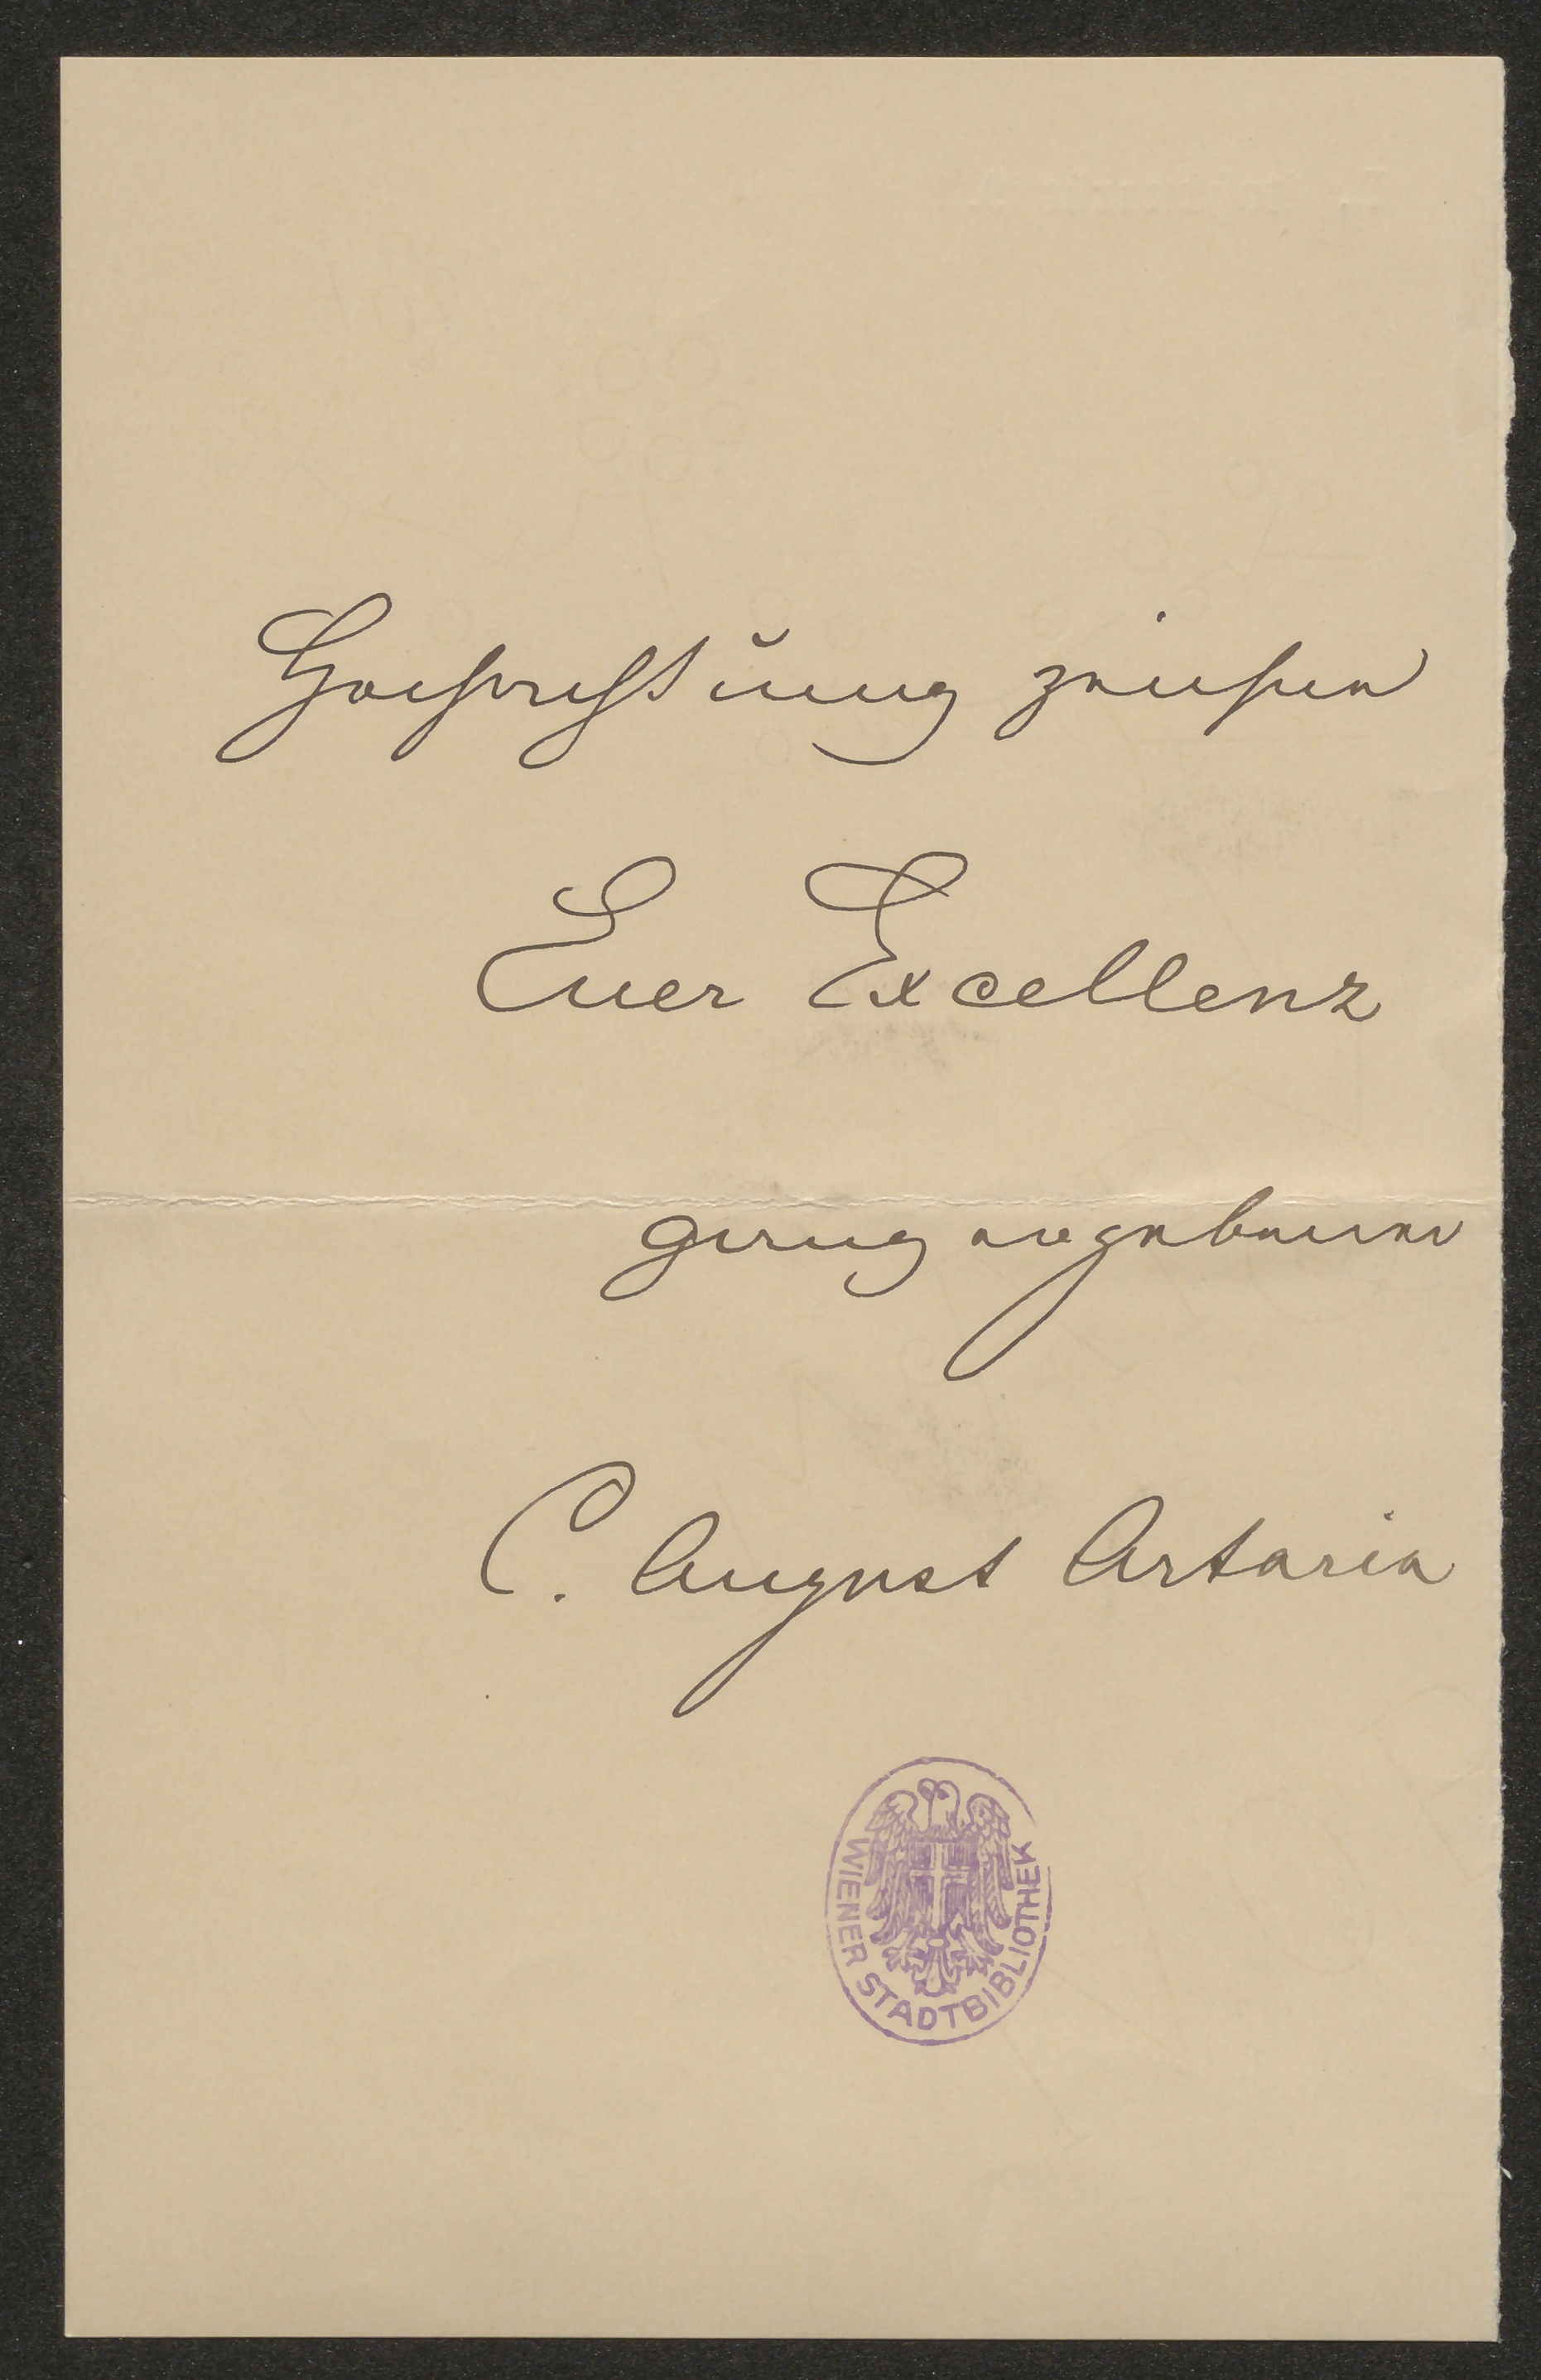 Hochachtung zeichne
Euer Excellenz
ganz ergebener
C. August Artaria
WIENER STADTBIBLIOTHEK